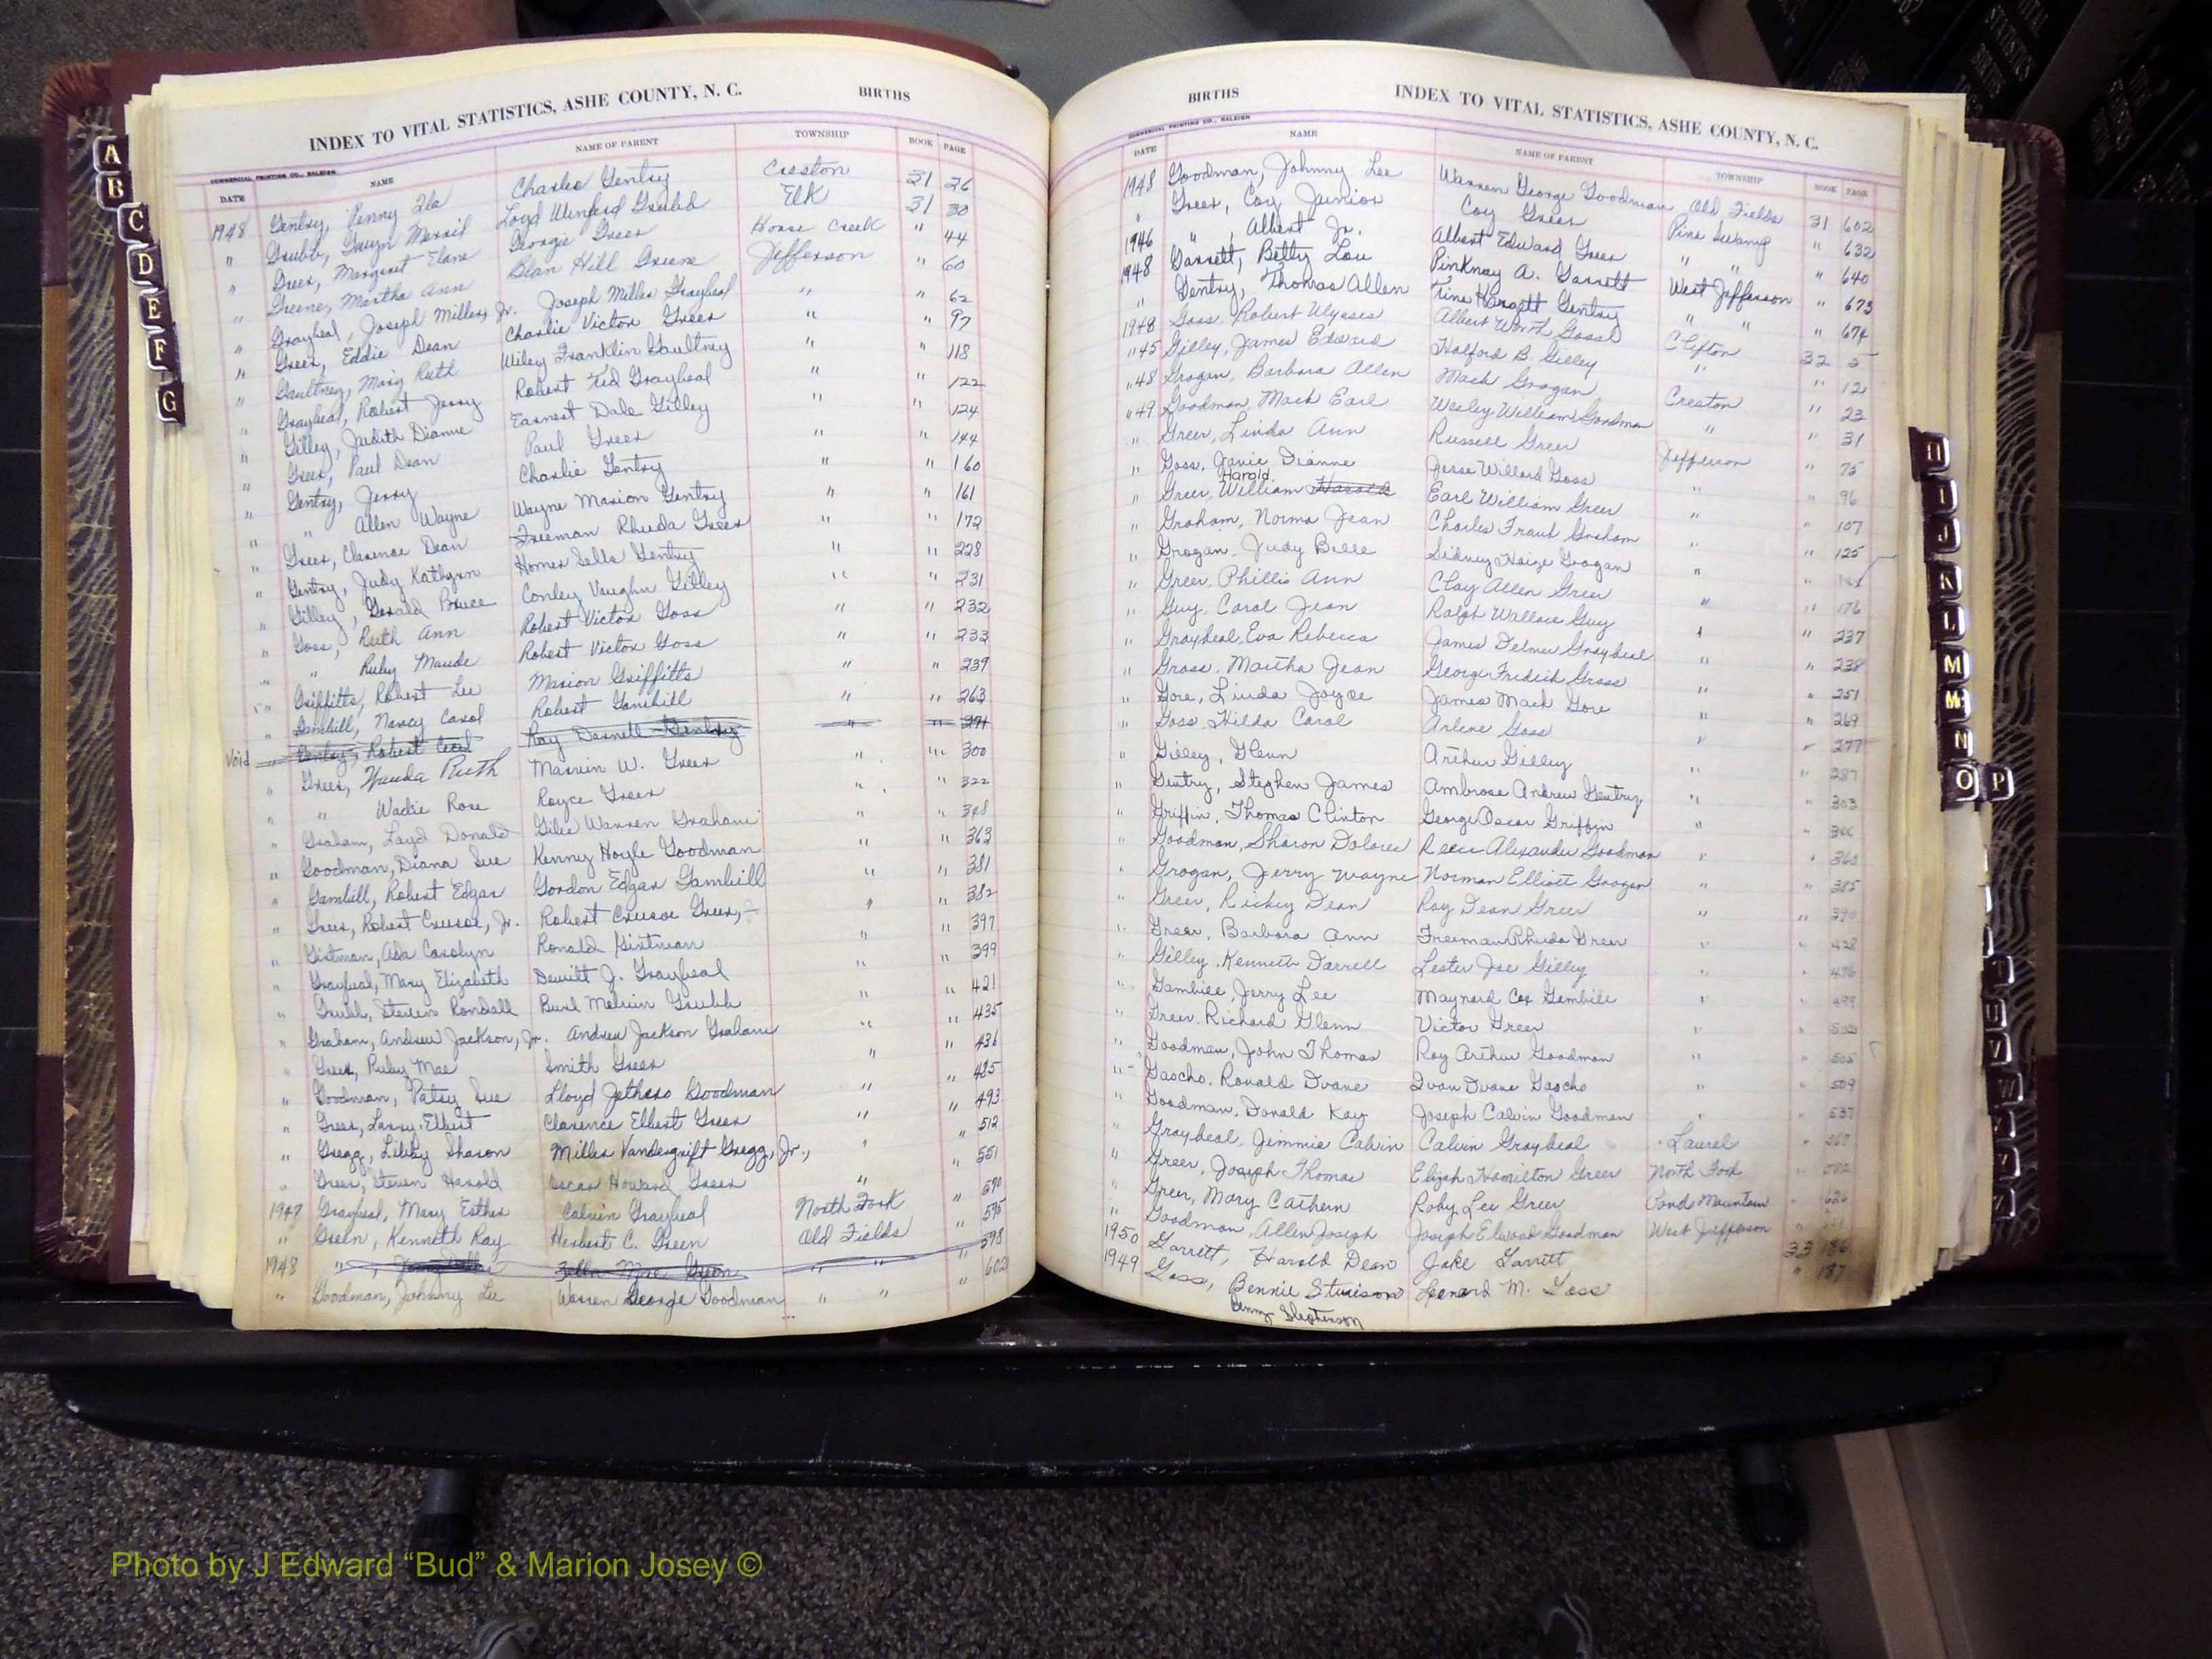 INDEX TO VITAL STATISTICS, ASHE COUNTY, N. C. BIRTHS
COMMERCIAL PRINTING CO., RALEIGH
DATE NAME NAME OF PARENT TOWNSHIP BOOK PAGE
1948 Gentry, Penny Ila Charles Gentry Creston 31 26
" Grubb, Merril Loyd Winford Grubb Elk 31 30
" Greer, Margaret Elane Georgie Greer Horse Creek " 44
" Greene, Martha Ann Blan Hill Greene Jefferson " 60
" Graybeal, Joseph Miller, Jr. Joseph Miller Graybeal " " 62
" Greer, Eddie Dean Charlie Victor Greer " " 97
" Gaultney, Mary Ruth Wiley Franklin Gaultney " " 118
" Graybeal, Robert Jerry Robert Ted Graybeal " " 122
" Gilley, Judith Dianne Earnest Dale Gilley " " 124
" Greer, Paul Dean Paul Greer " " 144
" Gentry, Jerry Charlie Gentry " " 160
" " Allen Wayne Wayne Marion Gentry " " 161
" Greer, Clarence Dean Freeman Rhuda Greer " " 172
" Gentry, Judy Kathynn Homer Sells Gentry " " 228
" Gilley, Gerald Bruce Conley Vaughn Gilley " " 231
" Goss, Ruth Ann Robert Victor Goss " " 232
" " Ruby Maude Robert Victor Goss " " 233
" Griffitts, Robert Lee Marion Griffitts " " 239
" Gambill, Nancy Carol Robert Gambill " " 263
Void " Gentry, Robert Cecil Ray Darnell Gentry " " 291
" Greer, Wanda Ruth Marvin W. Greer " " 300
" " Wadie Rose Royce Greer " " 322
" Graham, Loyd Donald Giles Warren Graham " " 348
" Goodman, Diana Sue Kenny Hoyle Goodman " " 363
" Gambill, Robert Edgar Gordon Edgar Gambill " " 381
" Greer, Robert Crusoe, Jr. Robert Crusoe Greer, " " 382
" Girtman, Ada Carolyn Ronald Girtman " " 397
" Graybeal, Mary Elizabeth Dewitt J. Graybeal " " 399
" Grubb, Steven Rondall Burl Melvin Grubb " " 421
" Graham, Andrew Jackson, Jr. Andrew Jackson Graham " " 435
" Greer, Ruby Mae Smith Greer " " 436
" Goodman, Patsy Sue Lloyd Jethero Goodman " " 485
" Greer, Larry Elbert Clarence Elbert Greer " " 493
" Gregg, Libby Sharon Miller Vandergrift Gregg, Jr., " " 512
" Greer, Steven Harold Oscar Howard Greer " " 551
1947 Graybeal, Mary Esther Calvin Graybeal North Fork " 590
" Green, Kenneth Ray Herbert C. Green Old Fields " 595
1948 " , Zella Mae Green " " " 598
" Goodman, Johnny Lee Warren George Goodman " " " 602
BIRTHS INDEX TO VITAL STATISTICS, ASHE COUNTY, N. C.
COMMERCIAL PRINTING CO., RALEIGH
DATE NAME NAME OF PARENT TOWNSHIP BOOK PAGE
1948 Goodman, Johnny Lee Warren George Goodman Old Fields 31 602
" Greer, Coy Junior Coy Greer Pine Swamp " 632
1946 " , Albert Jr. Albert Edward Greer " " " 640
1948 Garrett, Betty Lou Pinknay A. Garrett West Jefferson " 673
" Gentry, Thomas Allen Tine Hargett Gentry " " " 674
1948 Goss, Robert Ulysses Albert Worth Goss Clifton 32 5
"45 Gilley, James Edward Halford B. Gilley " " 12
"48 Grogan, Barbara Allen Mack Grogan Creston " 23
"49 Goodman, Mack Earl Wesley William Goodman " " 31
" Greer, Linda Ann Russell Greer Jefferson " 75
" Goss, Janie Dianne Jesse Willard Goss " " 96
Harold
" Greer, William Harold Earl William Greer " " 107
" Graham, Norma Jean Charles Frank Graham " " 125
" Grogan, Judy Belle Sidney Haize Grogan "
" Greer, Phillis Ann Clay Allen Greer " " 176
" Guy, Carol Jean Ralph Wallace Guy " " 237
" Graybeal, Eva Rebecca James Delmer Graybeal " " 238
" Gross, Martha Jean George Fredrick Gross " " 251
" Gore, Linda Joyce James Mack Gore " " 269
" Goss, Hilda Carol Arlene Goss " " 277
" Gilley, Glenn Arthur Gilley " " 287
" Gentry, Stephen James Ambrose Andrew Gentry " " 303
" Griffin, Thomas Clinton George Oscar Griffin "
" Goodman, Sharon Dolores Reece Alexander Goodman " " 360
" Grogan, Jerry Wayne Norman Elliott Grogan " " 385
" Greer, Rickey Dean Roy Dean Greer " " 390
" Greer, Barbara Ann Freeman Rhuda Greer " " 428
" Gilley, Kenneth Darrell Lester Joe Gilley " " 476
" Gambill, Jerry Lee Maynard Cox Gambill " " 499
" Greer, Richard Glenn Victor Greer " " 502
" Goodman, John Thomas Roy Arthur Goodman " " 505
" Gascho, Ronald Duane Ivan Duane Gascho " " 509
" Goodman, Donald Kay Joseph Calvin Goodman " " 537
" Graybeal, Jimmie Calvin Calvin Graybeal Laurel " 567
" Greer, Joseph Thomas Elijah Hamilton Greer North Fork " 582
" Greer, Mary Cathern Roby Lee Greer Pond Mountain " 626
" Goodman, Allen Joseph Joseph Elwood Goodman West Jefferson "
1950 Garrett, Harold Dean Jake Garrett 33 186
1949 Goss, Bennie Stuison Leonard M. Goss " 187
Benny Stephenson
A
B
C
D
E
F
G
H
I
J
K
L
M
Mc
N
O P
T
U
V
W
Photo by J Edward “Bud” & Marion Josey ©